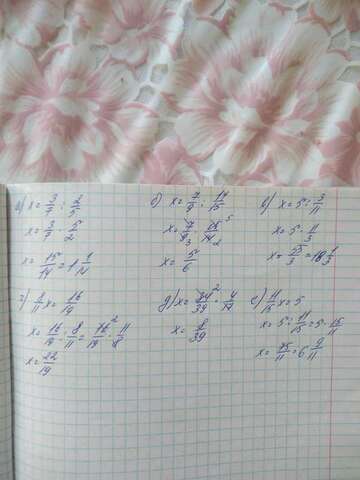 а) x = 3/7 : 2/5
x = 3/7 · 5/2
x = 15/14 = 1 1/14
б) x = 7/9 : 14/15
x = 7/9 3 · 15/14 5 2
x = 5/6
в) x = 5 : 3/11
x = 5 · 11/3
x = 55/3 = 18 1/3
г) 8/11 x = 16/19
x = 16/19 : 8/11 = 16/19 2 · 11/8
x = 22/19
x = 8/39
е) 11/15 x = 5
x = 5 : 11/15 = 5 · 15/11
x = 75/11 = 6 9/11